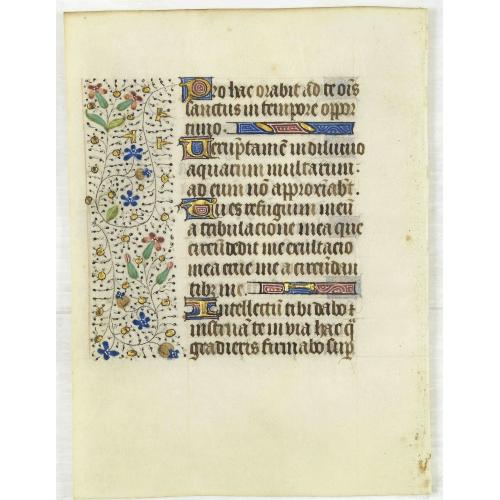 Pro hac orabit ad te oīs
sanctus in tempore oppor
tuno.
Veruptamē in diluvio
aquarum multarum:
ad eum nō approxīabt.
Tu es refugium meū
a tribulacione mea que
circūdedit me exultacio
mea erue me a circūdan
tibz me.
Intellectū tibi dabo et
instruā te in via hac q̄
gradieris firmabo sup